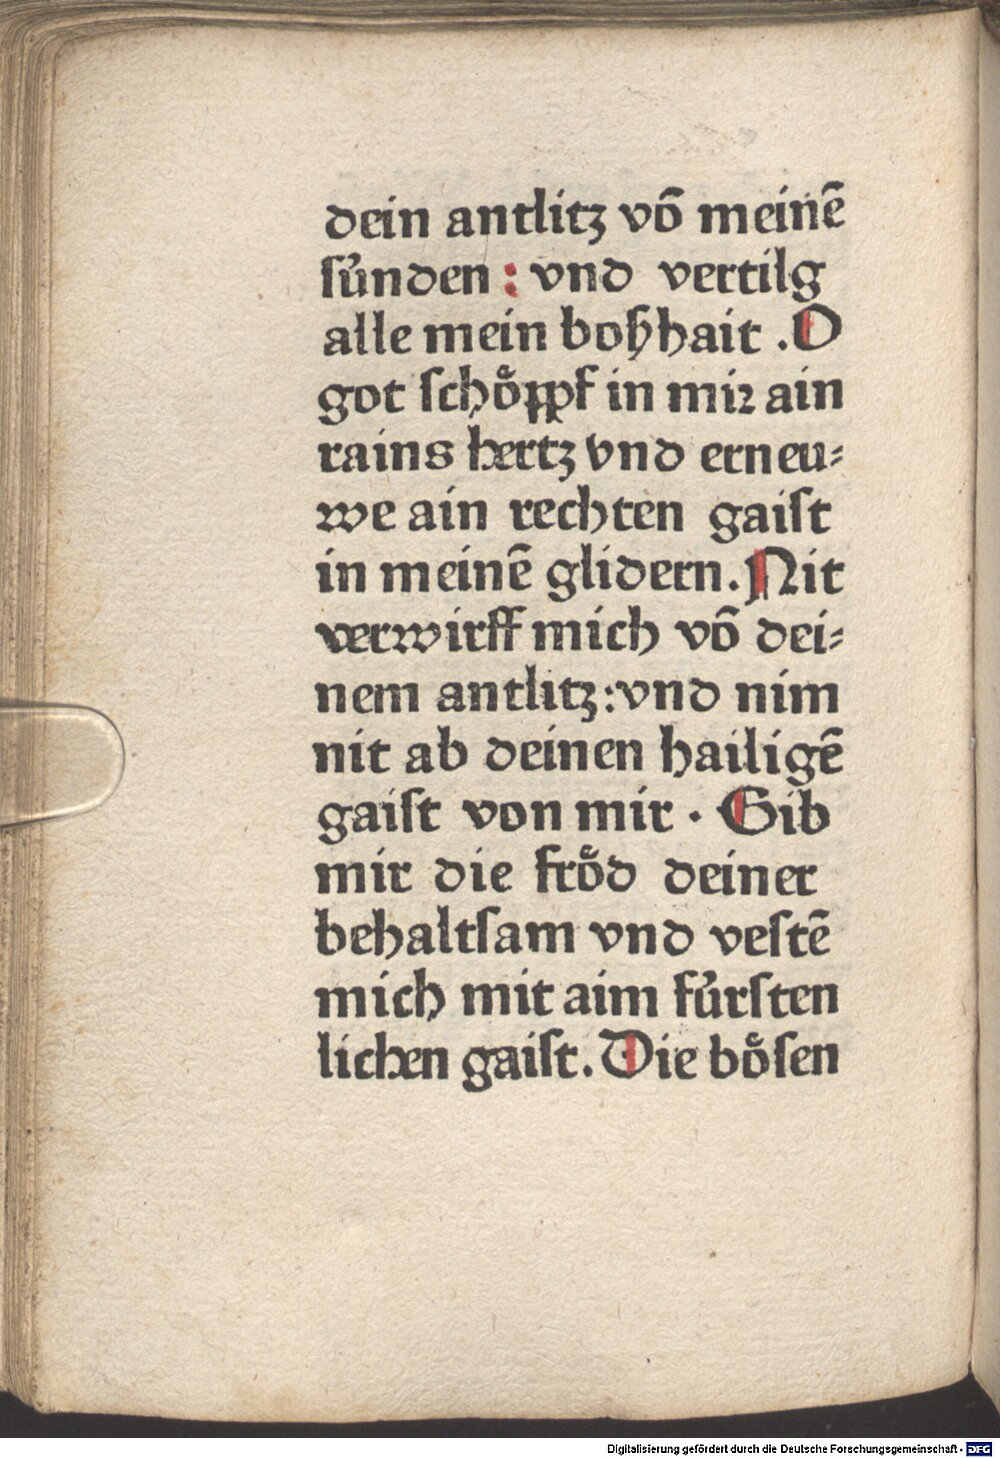 dein antlitz võ meinẽ
ſúnden : vnd vertilg
alle mein boßhait . O
got ſchoͤpff in mir ain
rains hertz vnd erneu⸗
we ain rechten gaiſt
in meinẽ glidern. Nit
verwirff mich võ dei⸗
nem antlitz: vnd nim
nit ab deinen hailigẽ
gaiſt von mir . Gib
mir die froͤd deiner
behaltſam vnd veſtẽ
mich mit aim fúrſten
lichen gaiſt. Die boͤſen
Digitalisierung gefördert durch die Deutsche Forschungsgemeinschaft - DFG